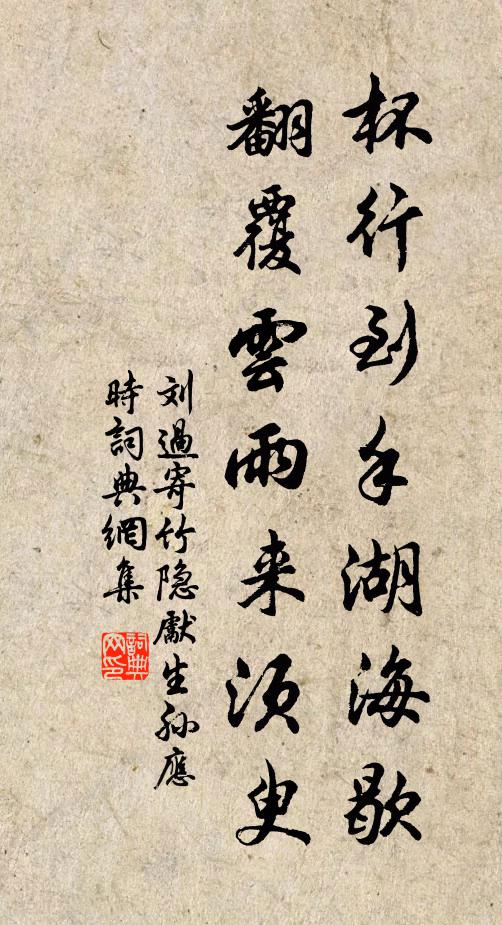 杯行到手湖海歇
翻覆雲雨来須臾
刘過寄竹隐獻生孙應
時詞典網集
詞典網印